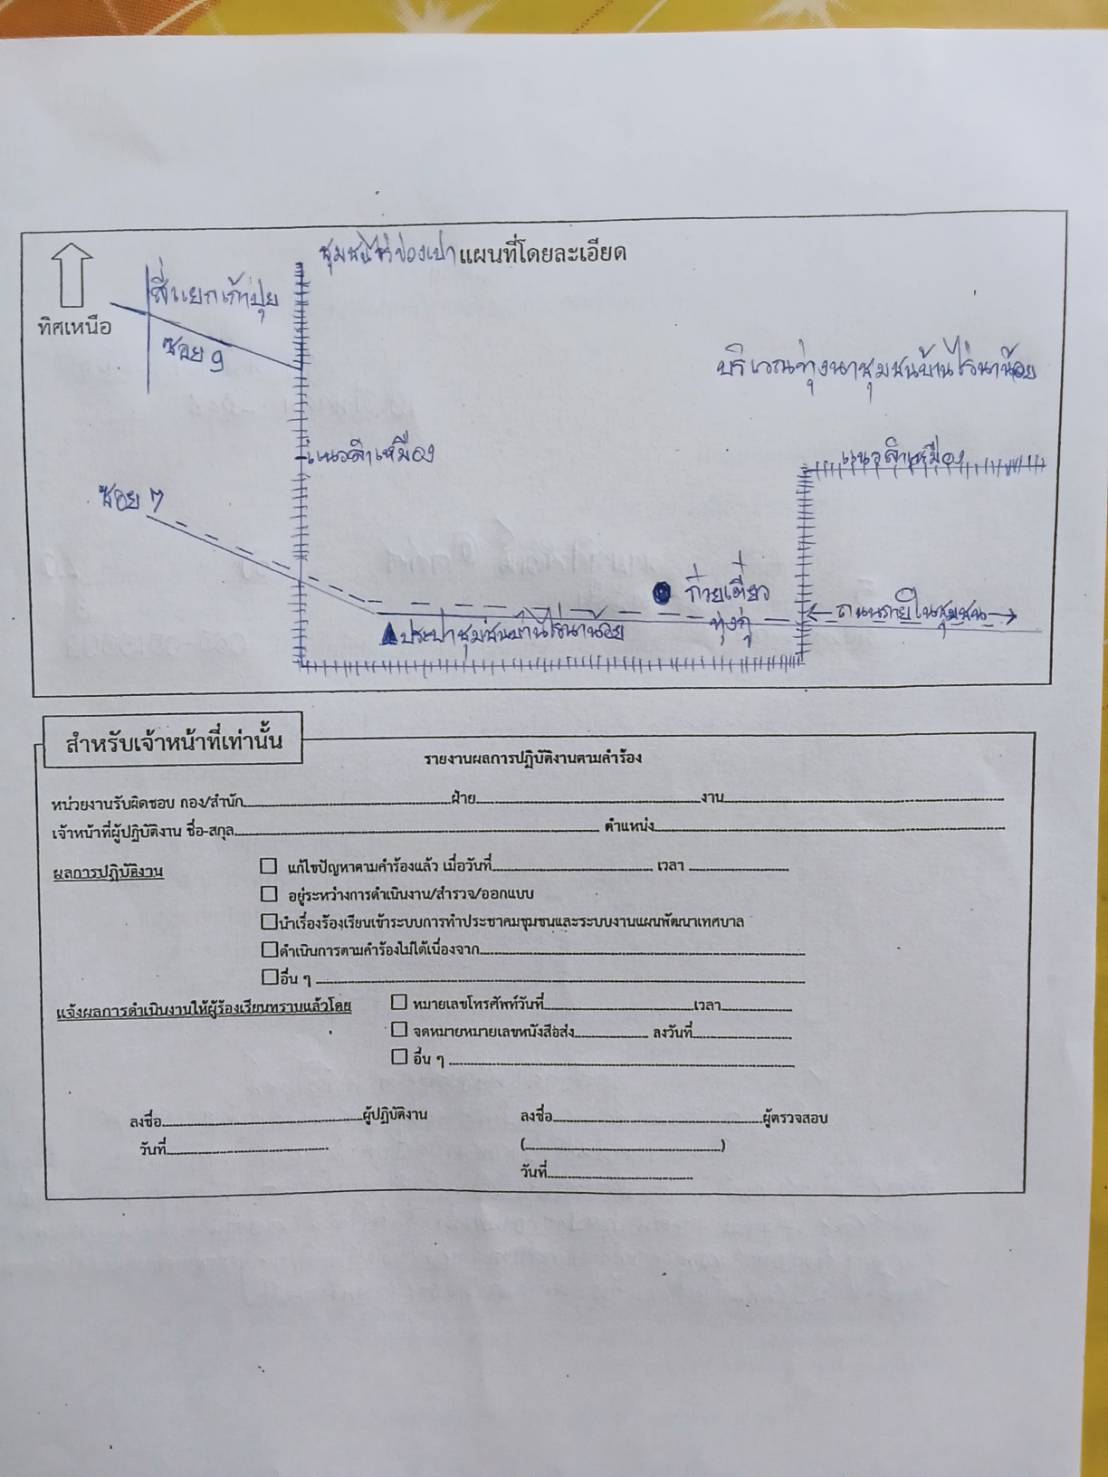 ชุมชนไร่ข่วงเปา แผนที่โดยละเอียด
ทิศเหนือ
สี่แยกเก้าปุย
ซอย 9
บริเวณทุ่งนาชุมชนบ้านไร่นาน้อย
แนวลำเหมือง
แนวลำเหมือง
ซอย 7
ก๋วยเตี๋ยว
ทุ่งกู่
ถนนภายในชุมชน
ประปาชุมชนบ้านไร่นาน้อย
สำหรับเจ้าหน้าที่เท่านั้น
รายงานผลการปฏิบัติงานตามคำร้อง
หน่วยงานรับผิดชอบ กอง/สำนัก ฝ่าย งาน
เจ้าหน้าที่ผู้ปฏิบัติงาน ชื่อ-สกุล ตำแหน่ง
ผลการปฏิบัติงาน
แก้ไขปัญหาตามคำร้องแล้ว เมื่อวันที่ เวลา
อยู่ระหว่างการดำเนินงาน/สำรวจ/ออกแบบ
นำเรื่องร้องเรียนเข้าระบบการทำประชาคมชุมชนและระบบงานแผนพัฒนาเทศบาล
ดำเนินการตามคำร้องไม่ได้เนื่องจาก
อื่น ๆ
แจ้งผลการดำเนินงานให้ผู้ร้องเรียนทราบแล้วโดย
หมายเลขโทรศัพท์วันที่ เวลา
จดหมายหมายเลขหนังสือส่ง ลงวันที่
อื่น ๆ
ลงชื่อ ผู้ปฏิบัติงาน ลงชื่อ ผู้ตรวจสอบ
วันที่ ( )
วันที่